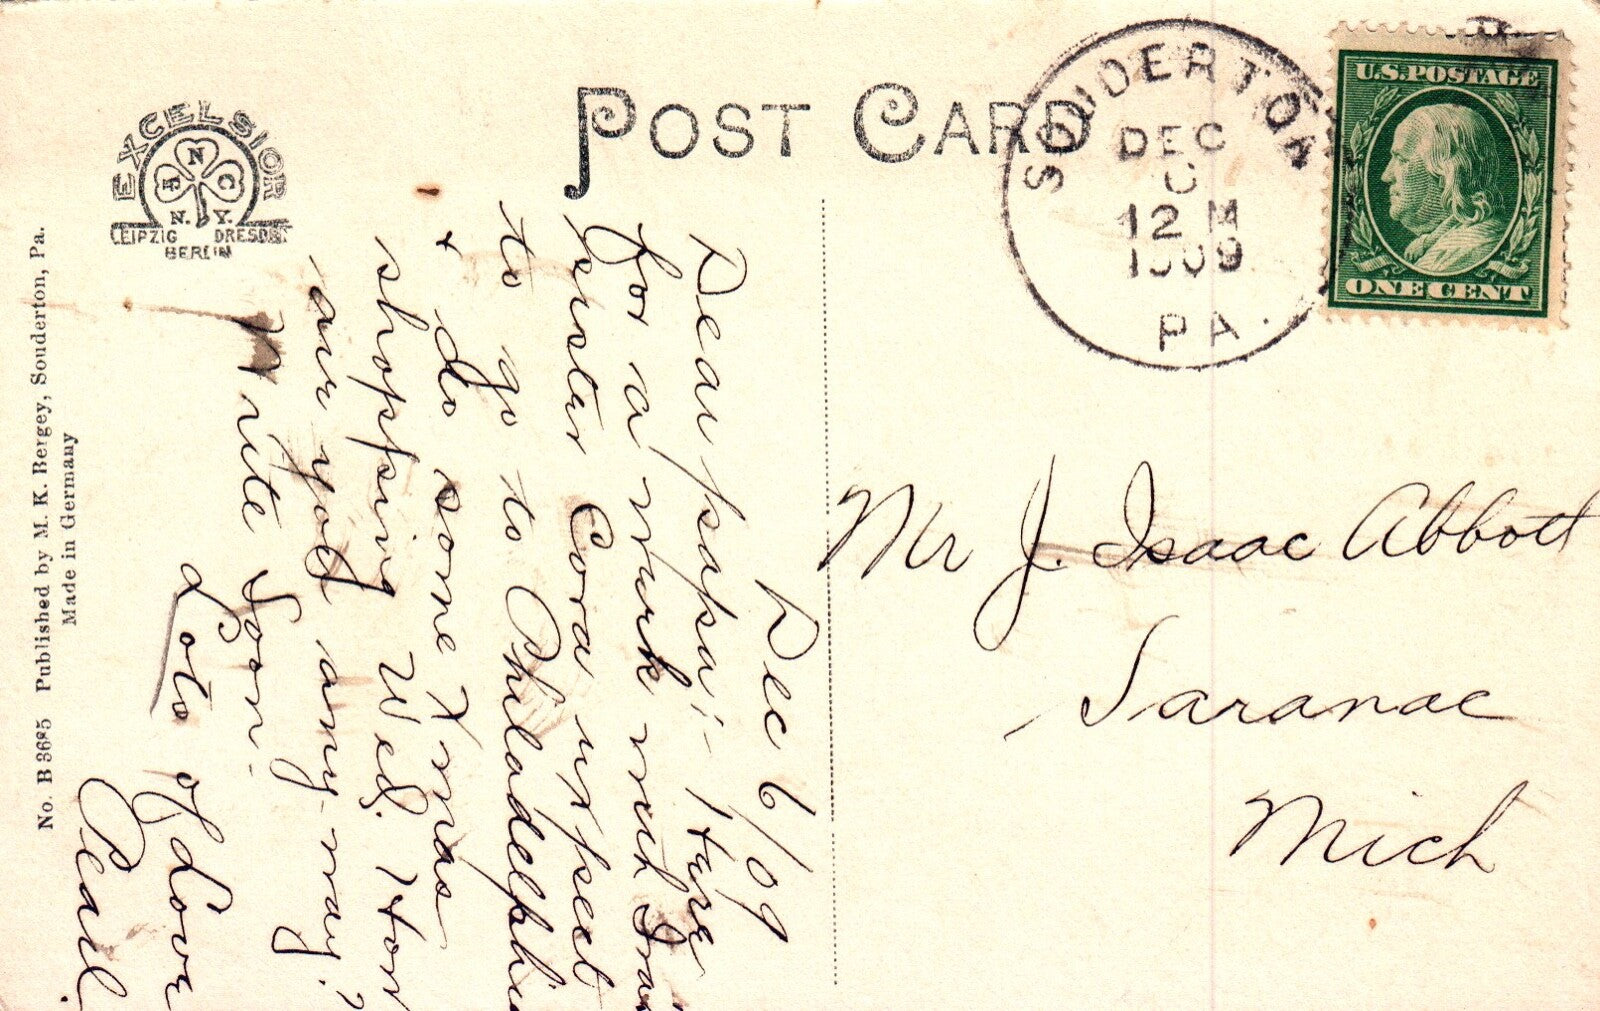 POST CARD
EXCELSIOR
A N C
N. Y.
LEIPZIG DRESDEN
BERLIN
SOUDERTON
DEC
12 M
1909
PA.
U.S. POSTAGE
ONE CENT
No. B 3685 Published by M. K. Bergey, Souderton, Pa.
Made in Germany
Dec 6/09
Dear papa:- Here
for a week with
sister Cora expect
to go to Philadelphia
+ do some Xmas
shopping Wed. How
are you any-way?
Write soon.
Lots of Love
Pearl.
Mr J. Isaac Abbott
Saranac
Mich